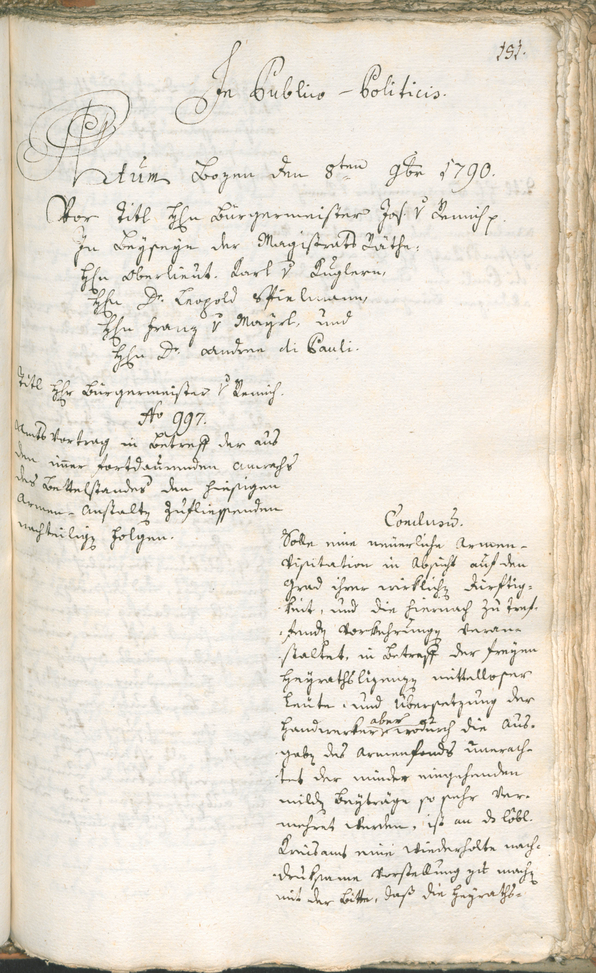 191.
In Publico-Politicis.
Actum Bozen den 8ten 9br 1790.
Vor Titl Hhn Bürgermeister Jos: v Remich p:
In Beyseyn der Magistrats Räthe:
Hhn Oberlieut. Karl v Kuglern,
Hhn Dr. Leopold Spielmann,
Hhn Franz v Mayrl, und
Hhn Dr. Andree di Pauli.
Titl Hhr Bürgermeister v Remich.
No 997.
Amts Vortrag in Betreff der aus
dem imer fortdaurenden Anwachs
des Bettelstandes den hiesigen
Armen-Anstaltn zufliessenden
nachteilign Folgen.
Conclusum.
Solle eine neuerliche Armen-
Visitation in Absicht auf den
Grad ihrer wirklichn Dürftig-
keit, und die hiernach zu tref-
fendn Vorkehrungn veran-
staltet, in Betreff der freyen
Heyrathslizenzn mittelloser
Leute, und Übersetzung der
Handwerker aber, wodurch die Aus-
gabn des Armenfonds unerach-
tet der minder eingehenden
mildn Beyträge so sehr ver-
mehret werden, ist an ds löbl.
Kreisamt eine wiederholte nach-
druksame Vorstellung zu machn
mit der Bitte, daß die Heyraths-